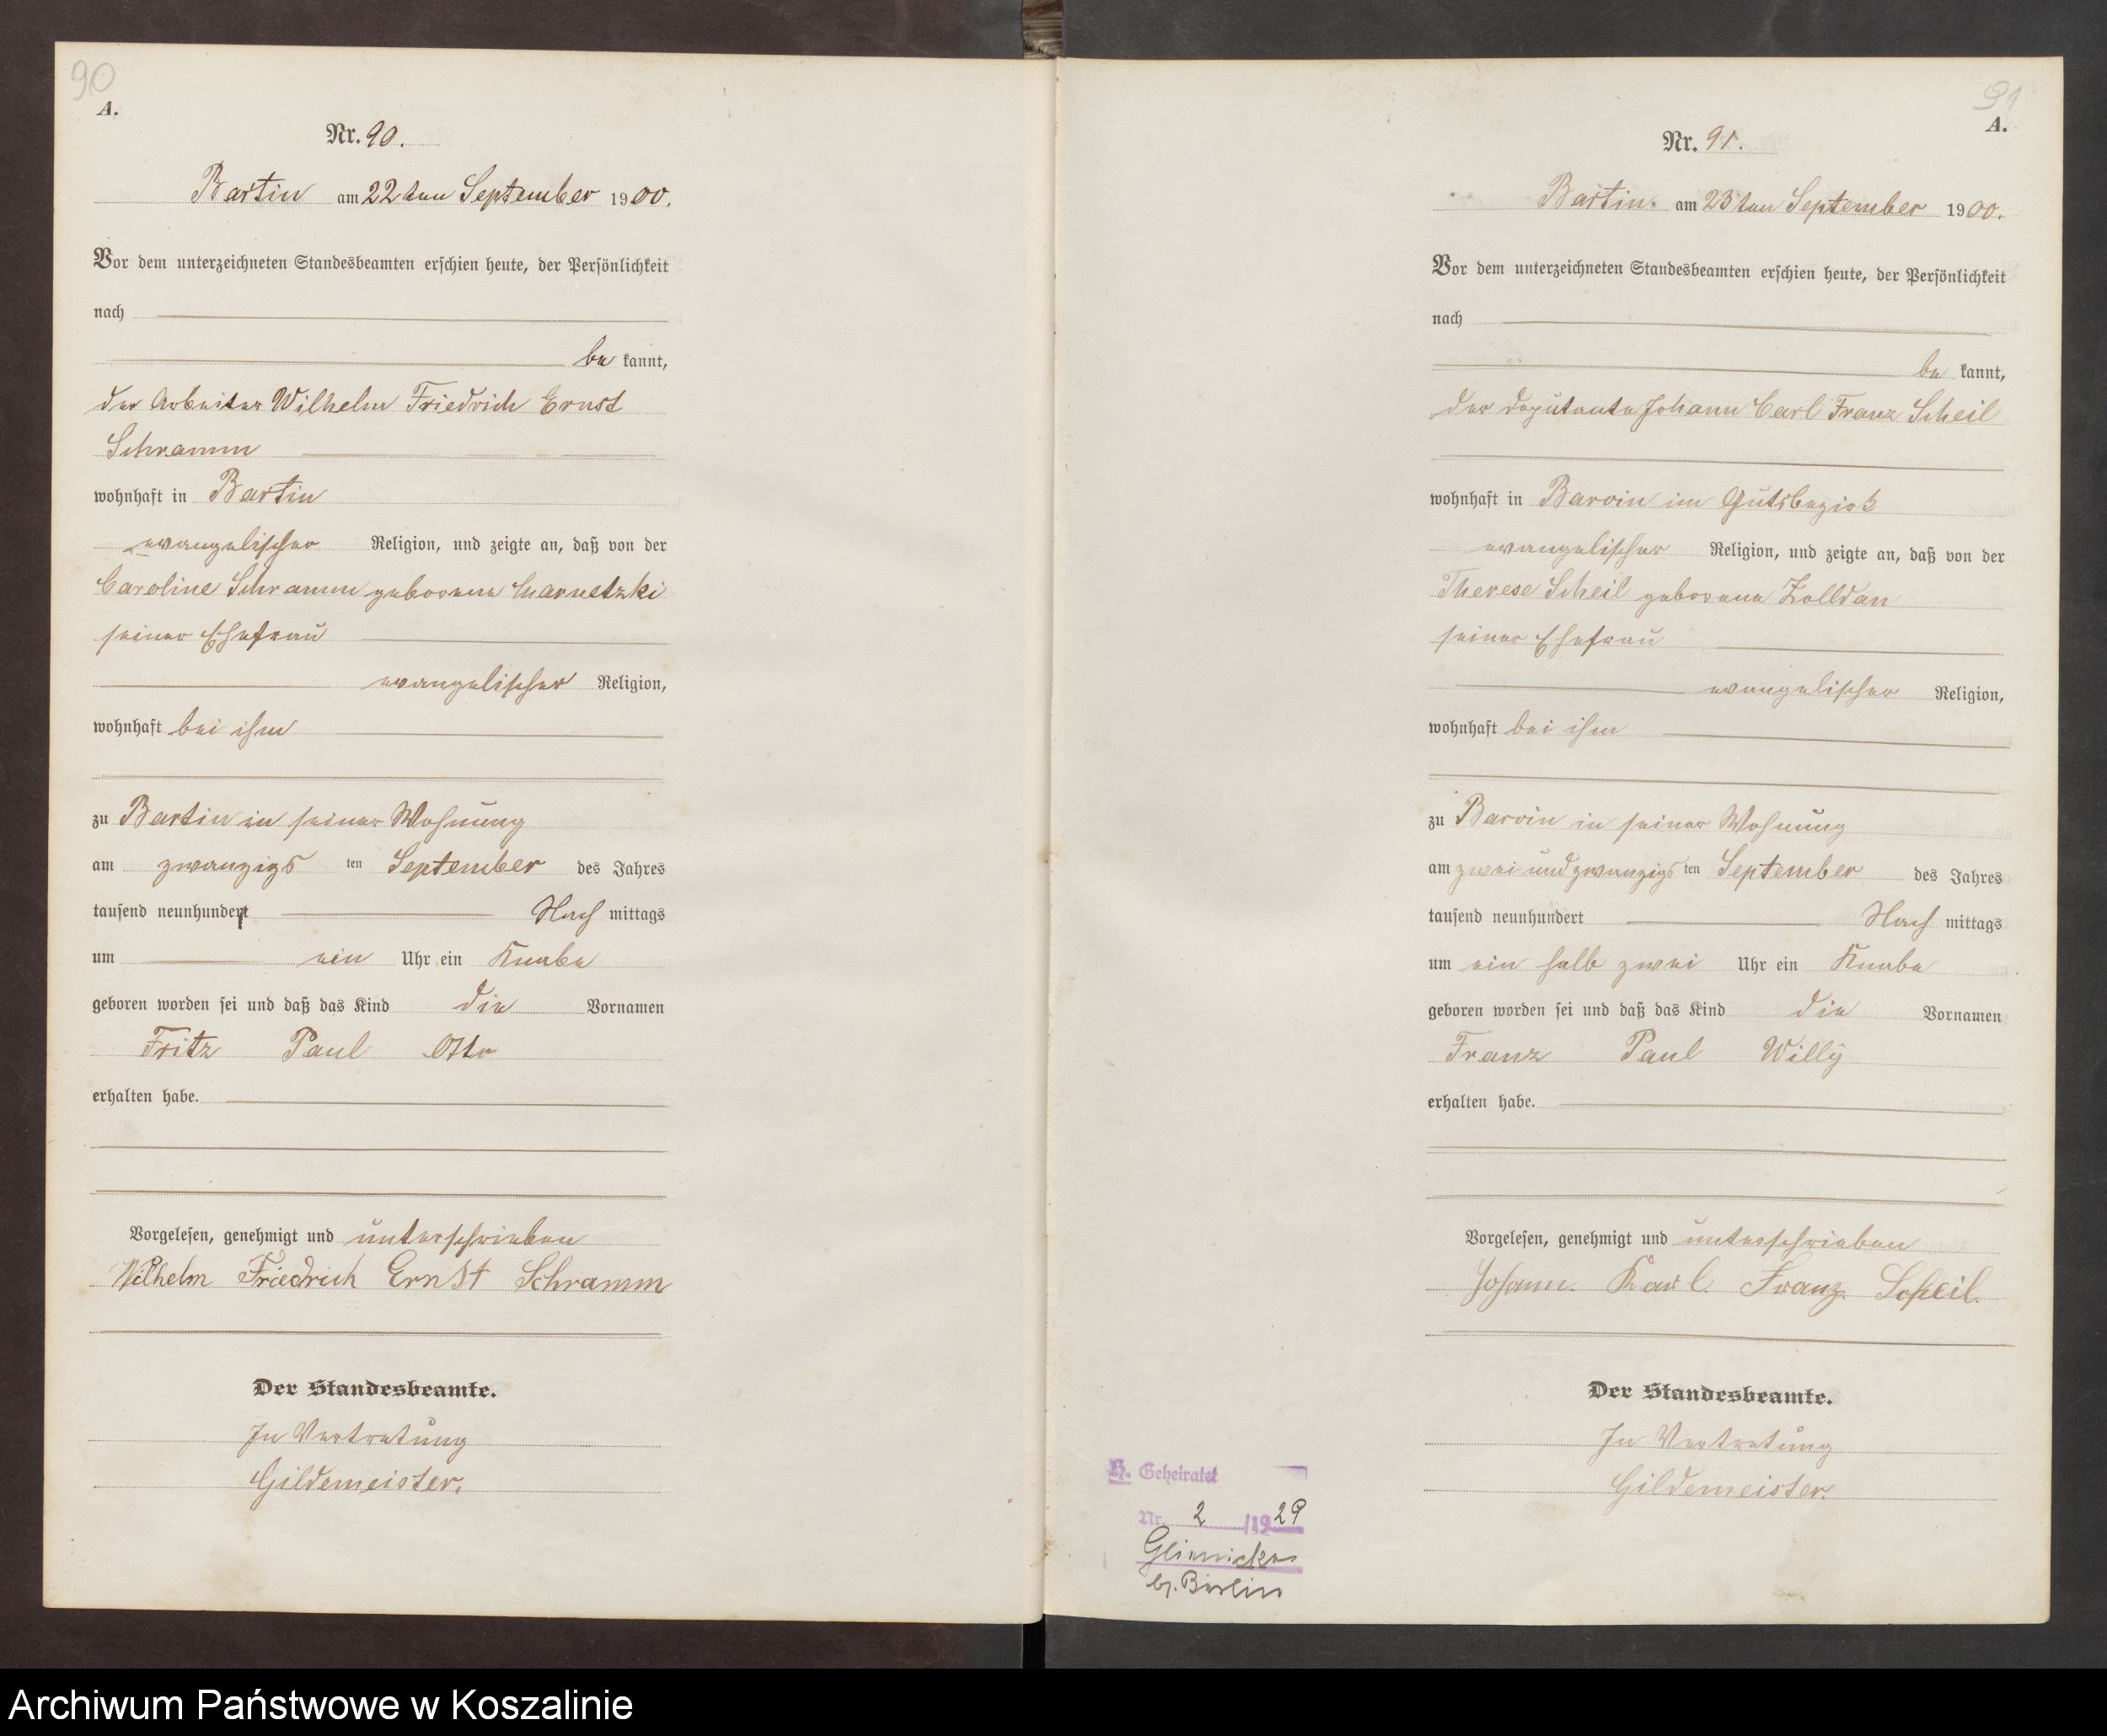 90
A.
Nr. 90.
Bartin am 22ten September 1900.
Vor dem unterzeichneten Standesbeamten erschien heute, der Persönlichkeit
nach
be kannt,
der Arbeiter Wilhelm Friedrich Ernst
Schramm
wohnhaft in Bartin
evangelischer Religion, und zeigte an, daß von der
Caroline Schramm geborene
seiner Ehefrau
evangelischer Religion,
wohnhaft bei ihm
zu Bartin in seiner Wohnung
am zwanzigs ten September des Jahres
tausend neunhundert Nach mittags
um ein Uhr ein Knabe
geboren worden sei und daß das Kind die Vornamen
Fritz Paul Otto
erhalten habe.
Vorgelesen, genehmigt und unterschrieben
Wilhelm Friedrich Ernst Schramm
Der Standesbeamte.
In Vertretung
Gildemeister.
91
A.
Nr. 91.
Bartin. am 23ten September 1900.
Vor dem unterzeichneten Standesbeamten erschien heute, der Persönlichkeit
nach
be kannt,
der Deputante Johann Carl Franz Scheil
wohnhaft in Barvin im Gutsbezirk
evangelischer Religion, und zeigte an, daß von der
Therese Scheil geborene Zolldan
seiner Ehefrau
evangelischer Religion,
wohnhaft bei ihm
zu Barvin in seiner Wohnung
am zwei und zwanzigs ten September des Jahres
tausend neunhundert Nach mittags
um ein halb zwei Uhr ein Knabe
geboren worden sei und daß das Kind die Vornamen
Franz Paul Willy
erhalten habe.
Vorgelesen, genehmigt und unterschrieben
Johann. Karl. Franz. Scheil.
Der Standesbeamte.
In Vertretung
Gildemeister.
Geheiratet
Nr. 2 /1929
Glienicke
b. Berlin
Archiwum Państwowe w Koszalinie